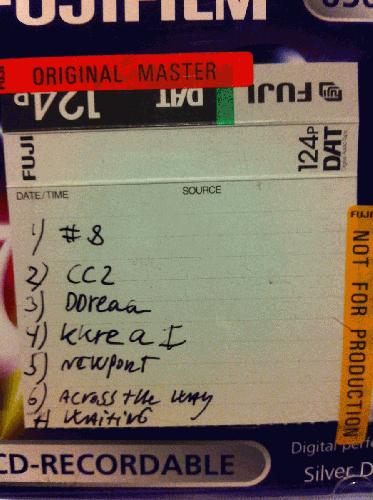 FUJIFILM
ORIGINAL MASTER
124P DAT FUJI
FUJI
124P
DAT
DATE/TIME SOURCE
1) #8
2) CC2
3) Doreaa
4) kkrea I
5) NEWPORT
6) ACROSS the WAY
# WAITING
FUJI
NOT FOR PRODUCTION
CD-RECORDABLE
Digital
Silver D